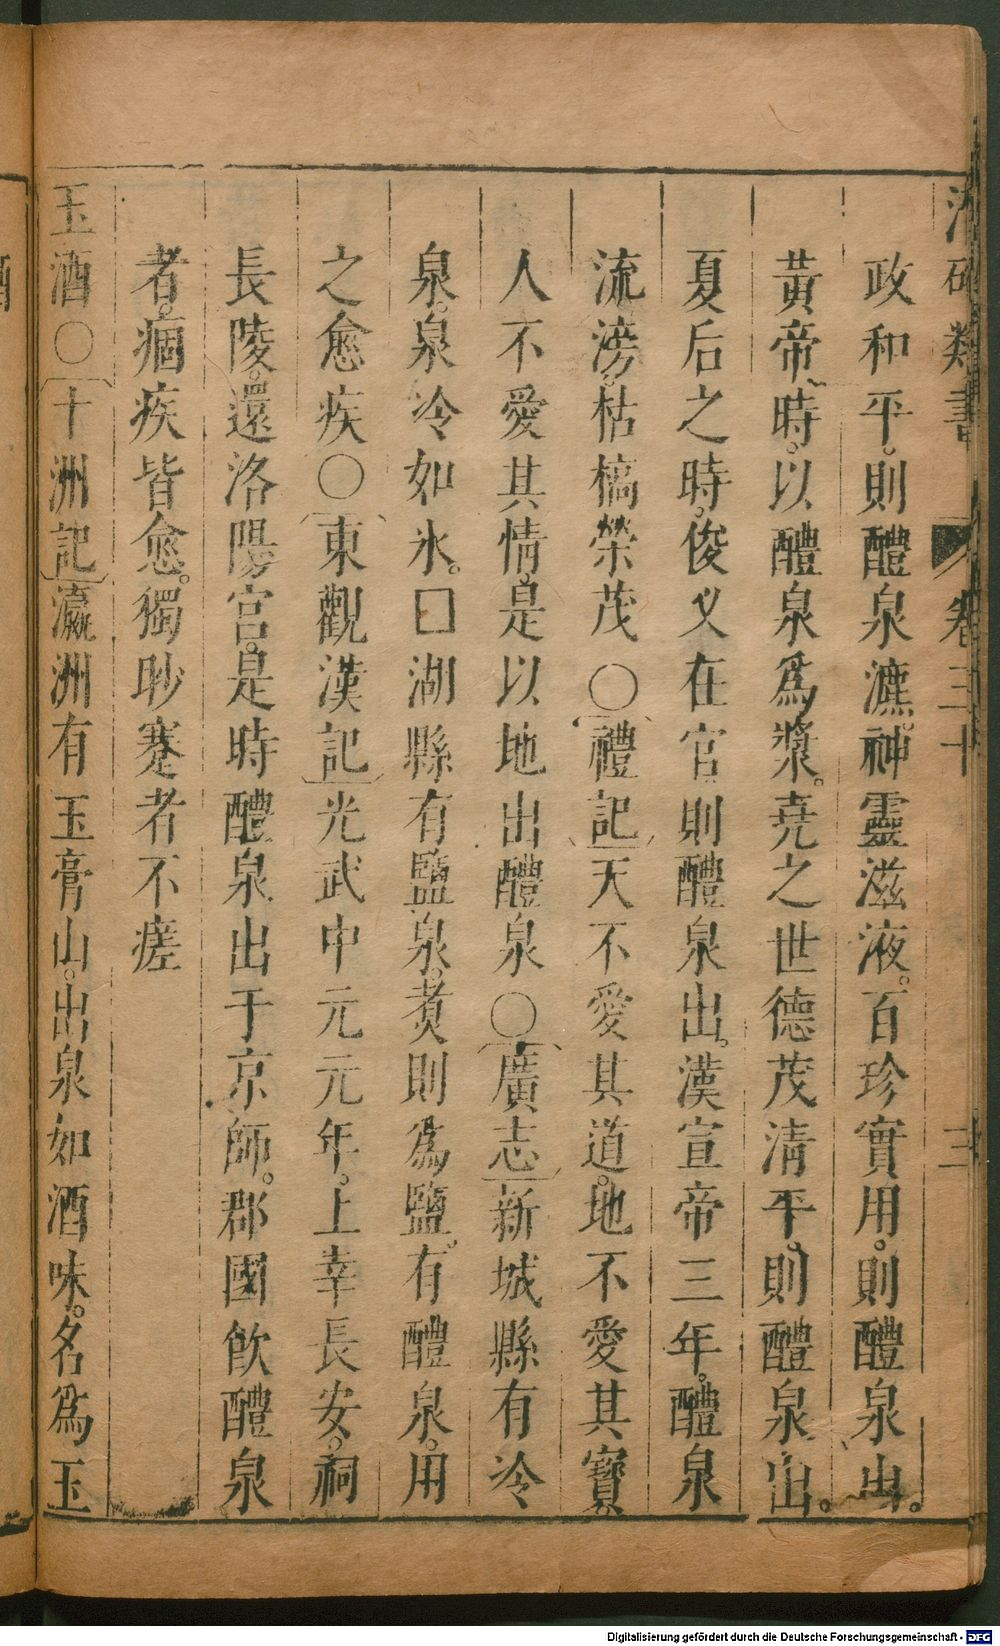 政和平。則醴泉漉。神靈滋液。百珍實用。則醴泉出。
黃帝時。以醴泉爲漿。堯之世德茂淸平。則醴泉出。
夏后之時。俊乂在官則醴泉出。漢宣帝三年。醴泉
流滂。枯槁榮茂〇禮記天不愛其道。地不愛其寶。
人不愛其情。是以地出醴泉〇廣志新城縣有冷
泉。泉冷如氷。□湖縣有鹽泉。煑則爲鹽。有醴泉。用
之愈疾〇東觀漢記光武中元元年。上幸長安。祠
長陵。還洛陽宮。是時醴泉出于京師。郡國飮醴泉
者。痼疾皆愈。獨眇蹇者不瘥
玉酒〇十洲記瀛洲有玉膏山。出泉如酒味。名爲玉
類書 卷三十 三
Digitalisierung gefördert durch die Deutsche Forschungsgemeinschaft - DFG